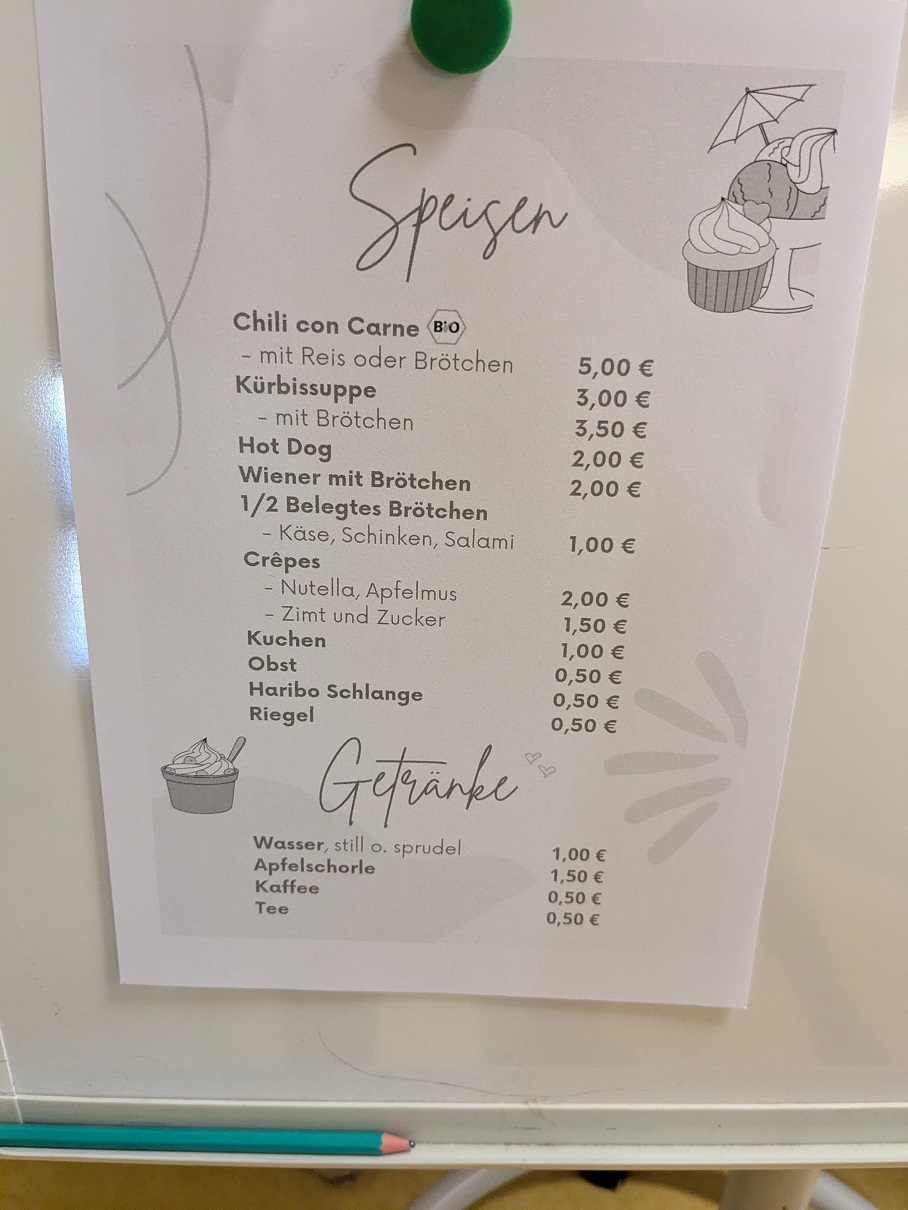 Speisen
Chili con Carne BIO
- mit Reis oder Brötchen 5,00 €
Kürbissuppe 3,00 €
- mit Brötchen 3,50 €
Hot Dog 2,00 €
Wiener mit Brötchen 2,00 €
1/2 Belegtes Brötchen
- Käse, Schinken, Salami 1,00 €
Crêpes
- Nutella, Apfelmus 2,00 €
- Zimt und Zucker 1,50 €
Kuchen 1,00 €
Obst 0,50 €
Haribo Schlange 0,50 €
Riegel 0,50 €
Getränke
Wasser, still o. sprudel 1,00 €
Apfelschorle 1,50 €
Kaffee 0,50 €
Tee 0,50 €